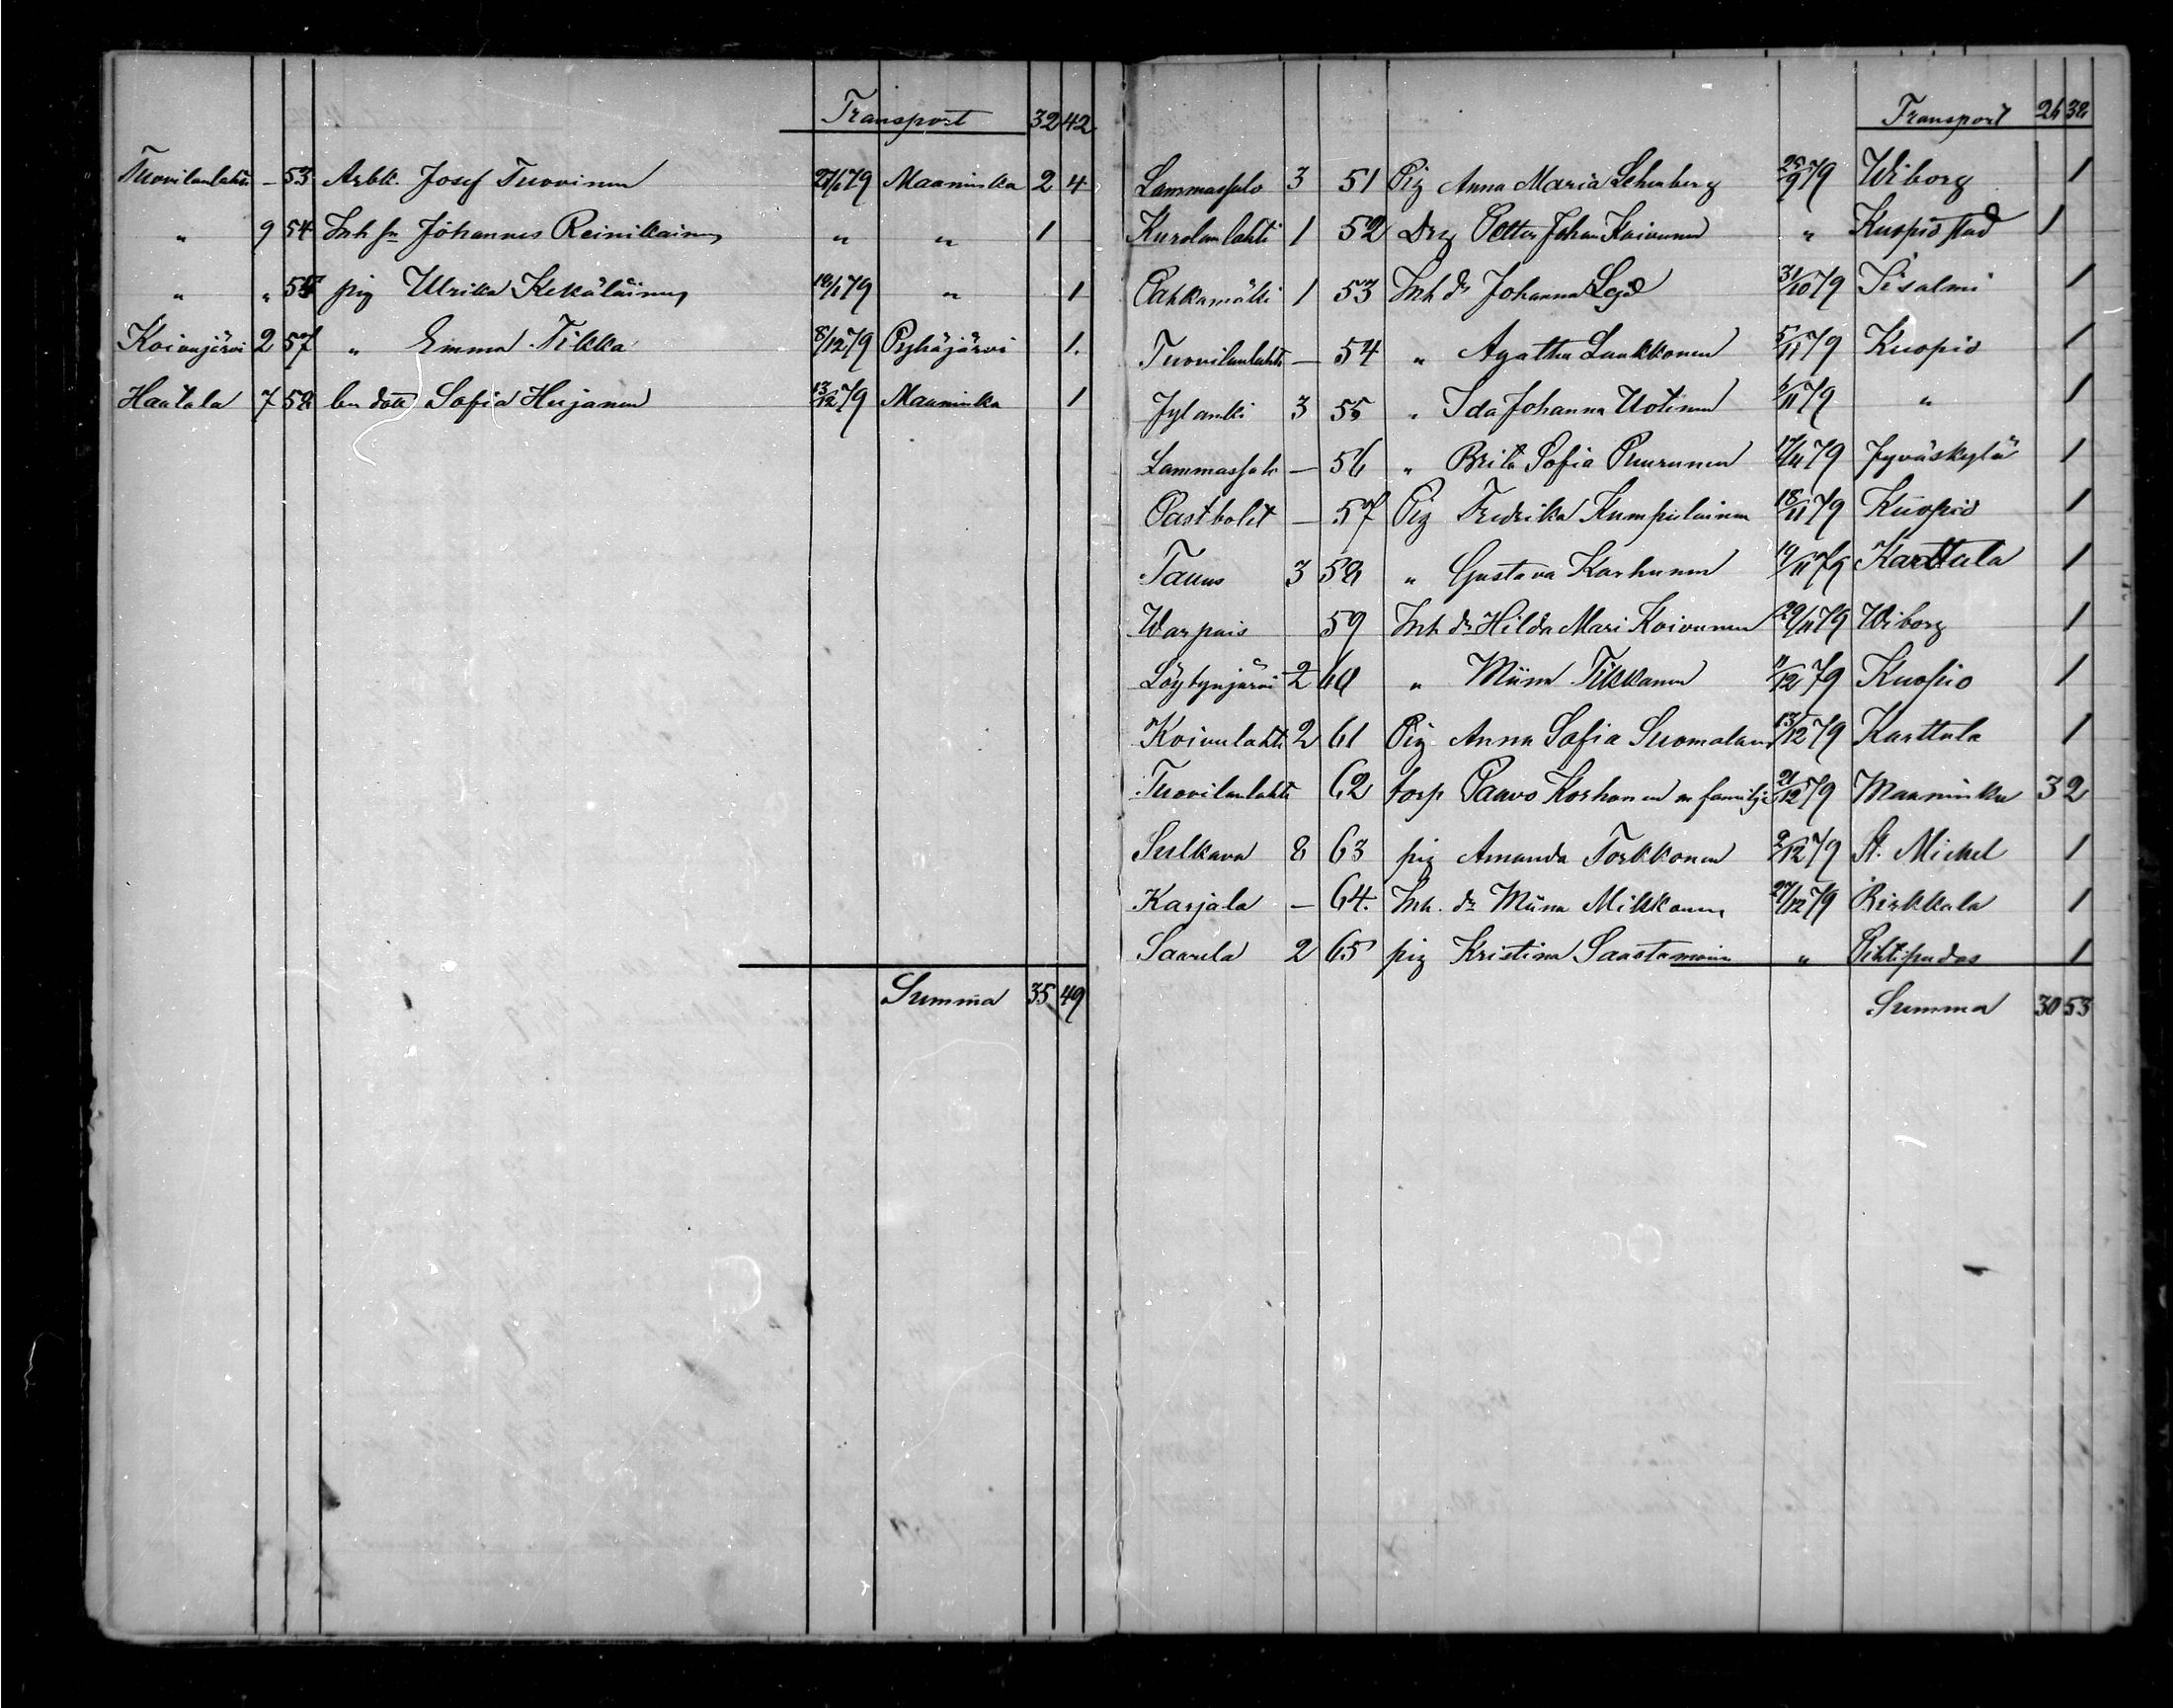 Transport 32 42
Tuovilanlahti – 53 Arbk. Josef Tuovinen 27/1 79 Maaninka 2 4
" 9 54 Inh sn Johannes Reinikainen " " 1
" " 55 pig Ulrika Kekäläinen 19/1 79 " 1
Koivujärvi 2 57 " Emma Tikka 8/12 79 Pyhäjärvi 1.
Hautala 7 58 bn dott Sofia Hujanen 13/12 79 Maaninka 1
Summa 35 49
Transport 26 38
Lammassalo 3 51 Pig Anna Maria Leherberg 25/9 79 Wiborg 1
Kurolanlahti 1 52 Drg Petter Johan Koivunen " Kuopio stad 1
Pahkamäki 1 53 Inh dr Johanna 31/10 79 Iisalmi 1
Tuovilanlahti – 54 " Agatha Laukkonen 5/11 79 Kuopio 1
Jylanki 3 55 " Ida Johanna Uotinen 6/11 79 " 1
Lammassalo – 56 " Brita Sofia Puurunen 17/11 79 Jyväskylä 1
Pastbolet – 57 Pig Fredrika Kumpulainen 18/11 79 Kuopio 1
Taus 3 58 " Gustava Karhunen 19/11 79 Karttula 1
Warpais 59 Inh dr Hilda Mari Koivunen 29/11 79 Wiborg 1
Löytynjärvi 2 60 " Miina Tikkanen 11/12 79 Kuopio 1
Koivulahti 2 61 Pig Anna Sofia Suomalainen 13/12 79 Karttula 1
Tuovilanlahti 62 torp Paavo Korhonen m familje 21/12 79 Maaninka 3 2
Sulkava 8 63 pig Amanda Torkkonen 2/12 79 St. Michel 1
Karjala – 64. Inh. dr Miina Mikkonen 27/12 79 Birkkala 1
Saarela 2 65 pig Kristina Saastamoin " Pihtipudas 1
Summa 30 53